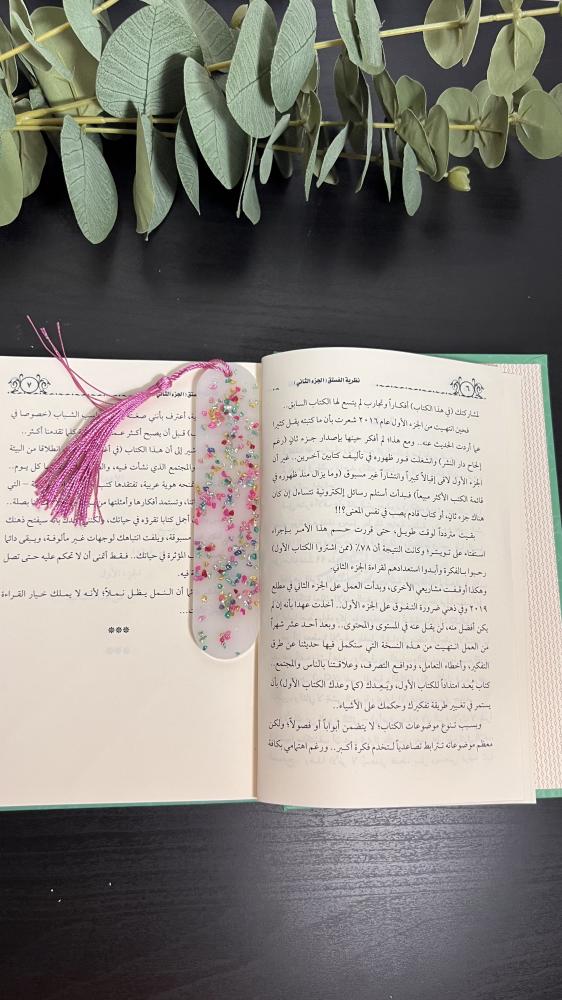 ٦
نظرية الفستق (الجزء الثاني)
لمشاركتك (في هذا الكتاب) أفكـاراً وتجارب لم يتسع لها الكتاب السابق..
فحين انتهيت من الجزء الأول عام ٢٠١٦ شعرت بأن ما كتبته يقـل كثيراً
عما أردت الحديث عنه.. ومع هذا؛ لم أفكر حينها بإصدار جـزء ثانٍ (رغم
إلحاح دار النشر) وانشغلت فـور ظهوره في تأليـف كتابين آخريـن.. غير أن
الجزء الأول لاقى إقبالاً كبيراً وانتشاراً غير مسبوق (وما يزال منذ ظهوره في
قائمة الكتب الأكثر مبيعاً) فبـدأت أستلم رسائل إلكترونية تساءل إن كان
هناك جزء ثانٍ، أو كتاب قادم يصب في نفس المعنى؟!!
بقيت متردداً لوقت طويـل، حتى قررت حسـم هذا الأمـر بـإجراء
استفتاء على تويتـر؛ وكانت النتيجة أن ٧٨٪ (ممن اشتروا الكتاب الأول)
رحبـوا بـالفكرة وأبـدوا استعدادهم لقراءة الجزء الثاني.
وهكذا أوقفـت مشاريعي الأخرى، وبدأت العمل على الجزء الثاني في مطلع
٢٠١٩ وفي ذهني ضرورة التفـوق على الجزء الأول.. أخذت عهداً بأنه إن لم
يكن أفضل منه، لن يقـل عنه في المستوى والمحتوى.. وبعد أحـد عشر شهراً
من العمل انتهيـت من هـذه النسخة التي ستكمل فيها حديثنا عن طرق
التفكير، وأخطاء التعامل، ودوافـع التصرف، وعلاقـتنا بالناس والمجتمع..
كتاب يُعـد امتداداً للكتاب الأول، ويَعـدك (كما وعدك الكتاب الأول) بأن
يستمر في تغيير طريقة تفكيرك وحكمك على الأشياء..
وبسبب تنوع موضوعات الكتاب؛ لا يتضمن أبواباً أو فصولاً؛ ولكن
معظم موضوعاته تترابط تصاعدياً لـتخدم فكرة أكبـر.. ورغم اهتمامي بكافة
٧
(الجزء الثاني)
أعترف بأنني
الشباب (خصوصا في
قبـل أن يصبح أكثر
كلما تقدمنا أكثر..
إلى أن هذا الكتاب (في
انطلاقا من البيئة
والمجتمع الذي نشأت فيه،
كل يـوم..
هوية عربية، تفتقدها
– التي
وتستمد أفكارها وأمثلتها
بصلة..
أجمل كتابا تقرؤه في حياتك، ولكنـ
سيفتح ذهنك
مسبوقة، ويلفت انتباهك لوجهات غـير مألـوفـة، ويبقى دائما
المؤثرة في حياتك.. فقـط أتمنى أن لا تحكم عليه حتـى تصل
فيه.
أن النمـل يظـل نمـلاً؛ لأنـه لا يمـلك خيـار القـراءة
***